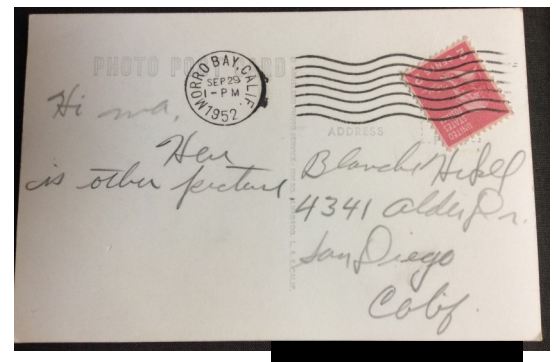 PHOTO POST CARD
MORRO BAY, CALIF.
SEP 29
1 - PM
1952
UNITED
STATES
ADDRESS
Hi ma,
Here
is other picture
Blanche
4341 Alder Dr.
San Diego
Calif.